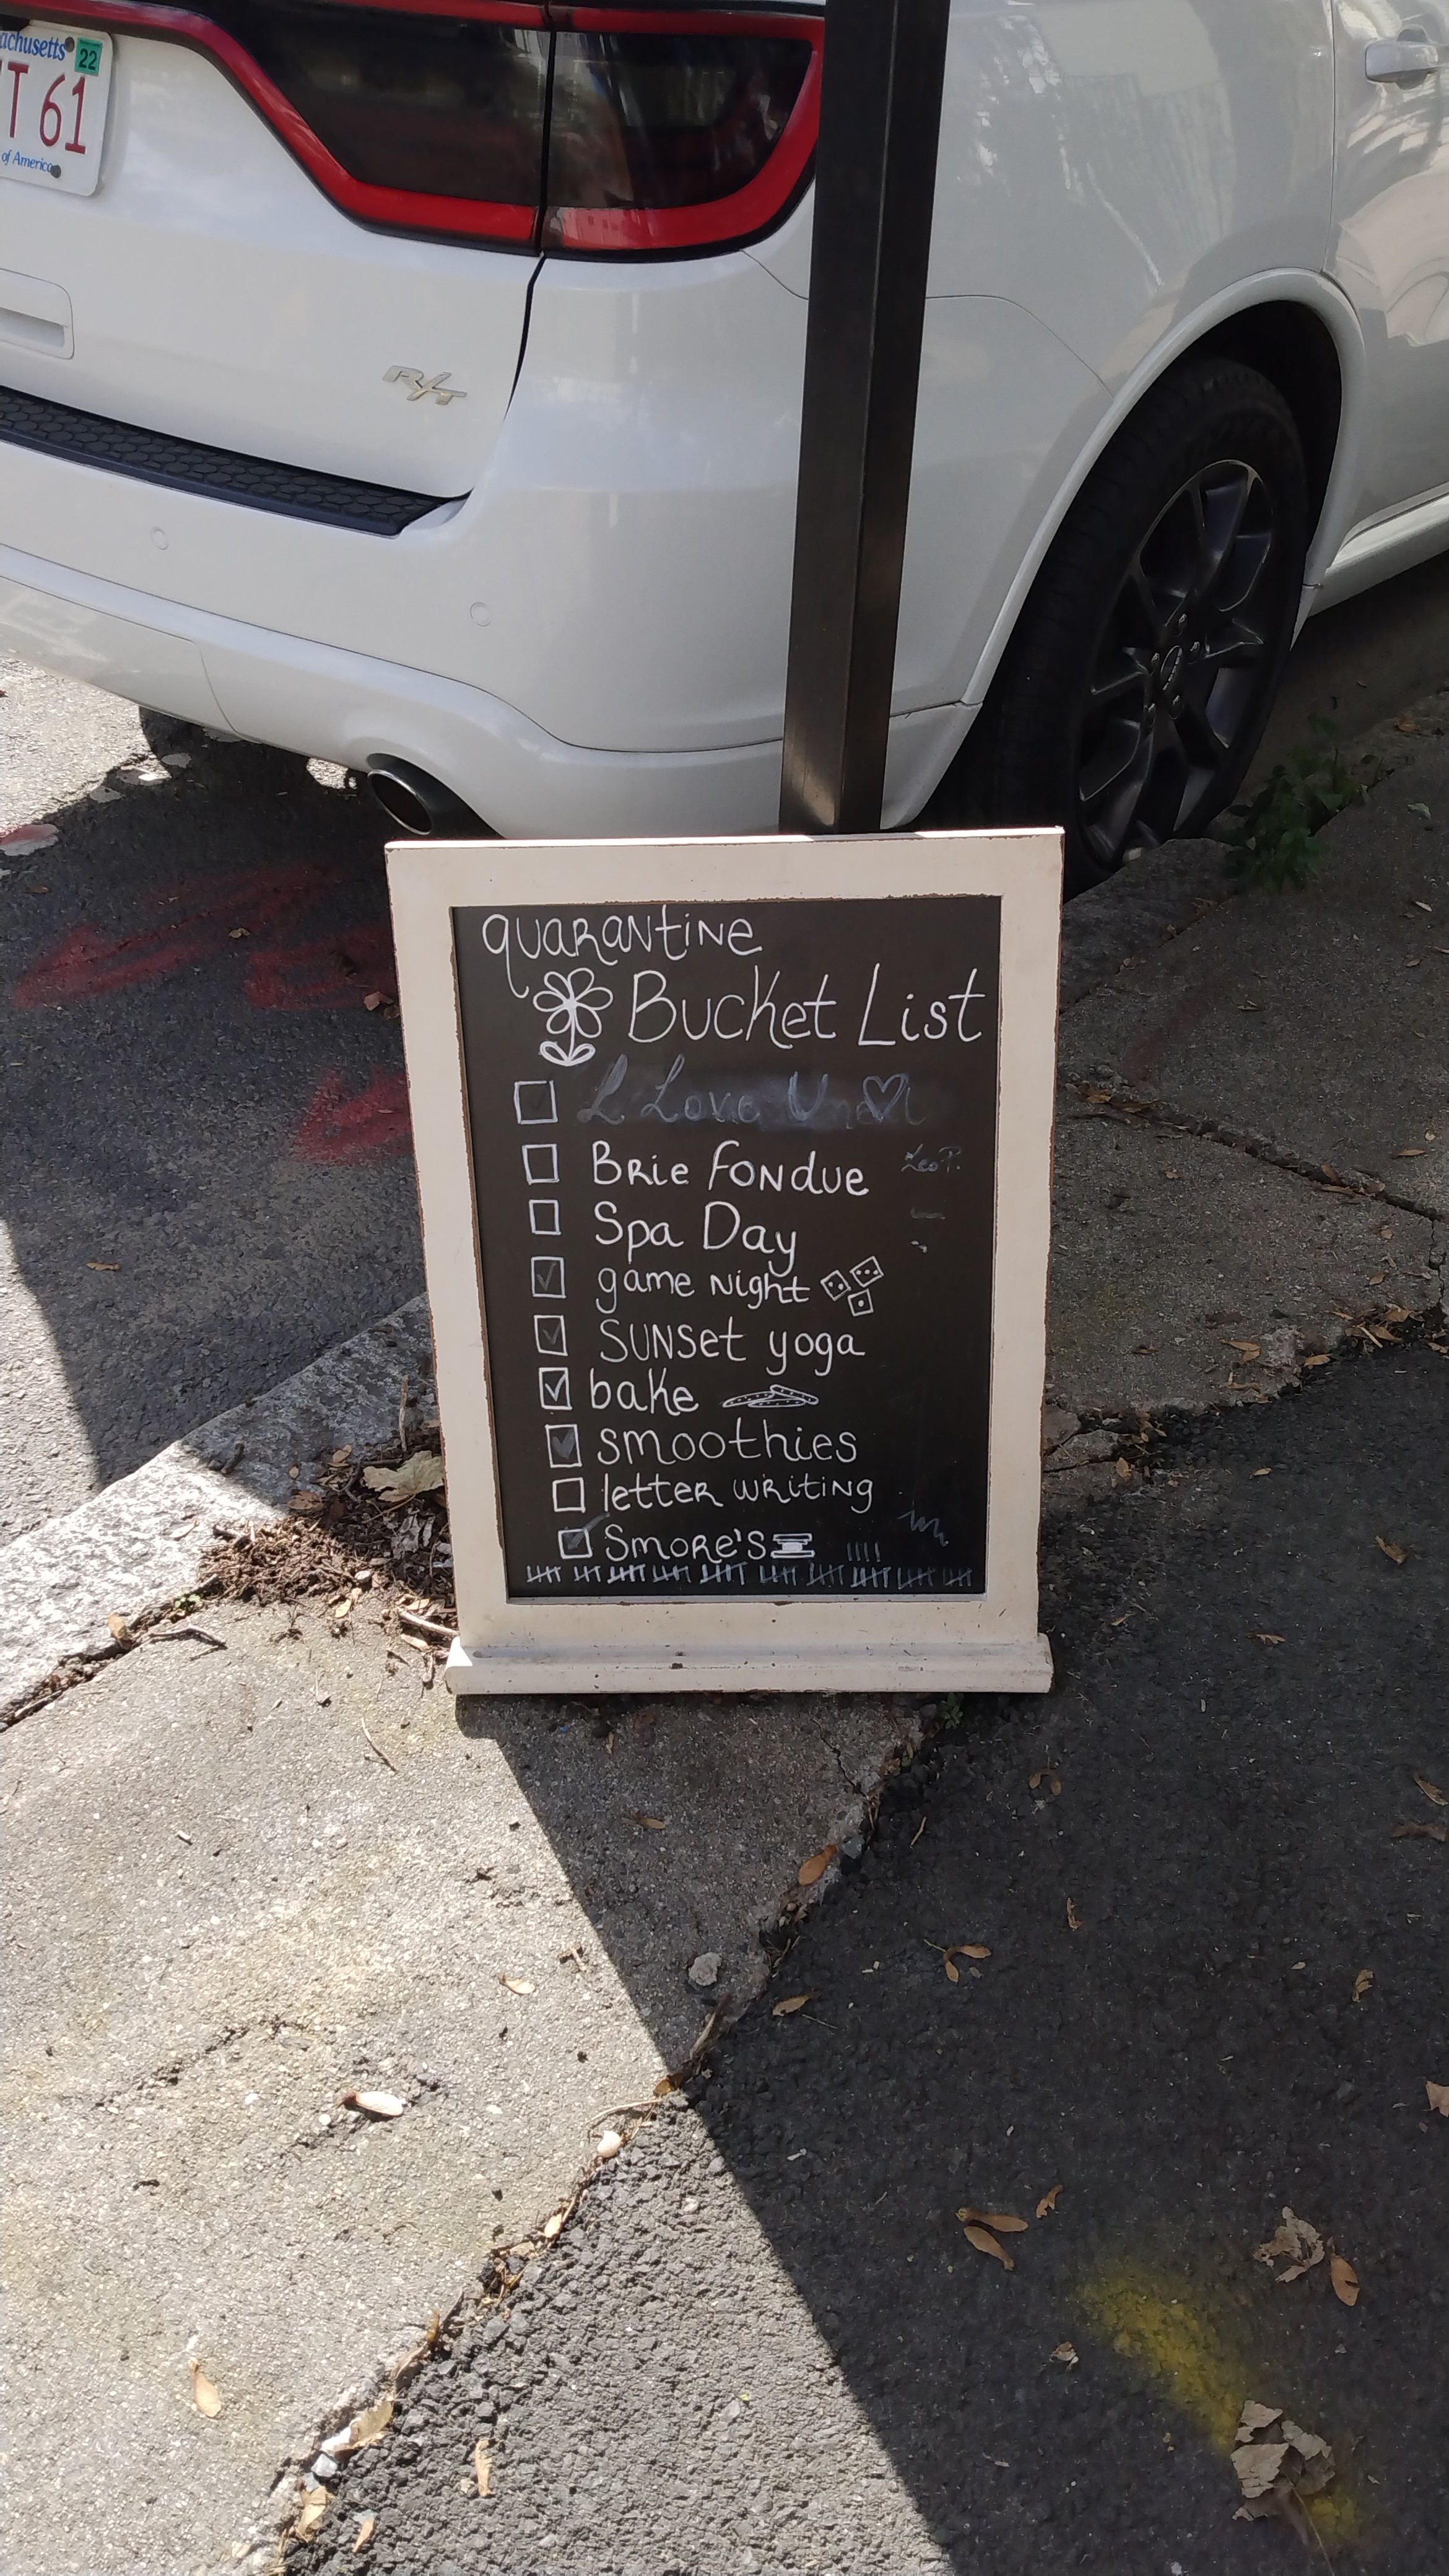 achusetts 22
T 61
of America
R/T
quarantine
Bucket List
I Love U
Brie fondue
Leo P.
Spa Day
game night
sunset yoga
bake
smoothies
letter writing
Smore's